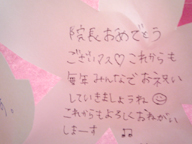 院長おめでとう
ございマス♡これからも
毎年みんなでお祝い
していきましょうね☺
これからもよろしくおねがい
しまーす ♫